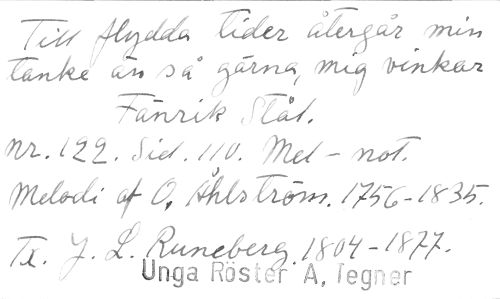 Till flydda tider återgår min
tanke än så gärna, mig vinkar
Fänrik Stål.
nr. 122. Sid. 110. Mel - not.
Melodi af O. Åhlström. 1756-1835.
Tx. J. L. Runeberg. 1804-1877.
Unga Röster A, Tegner